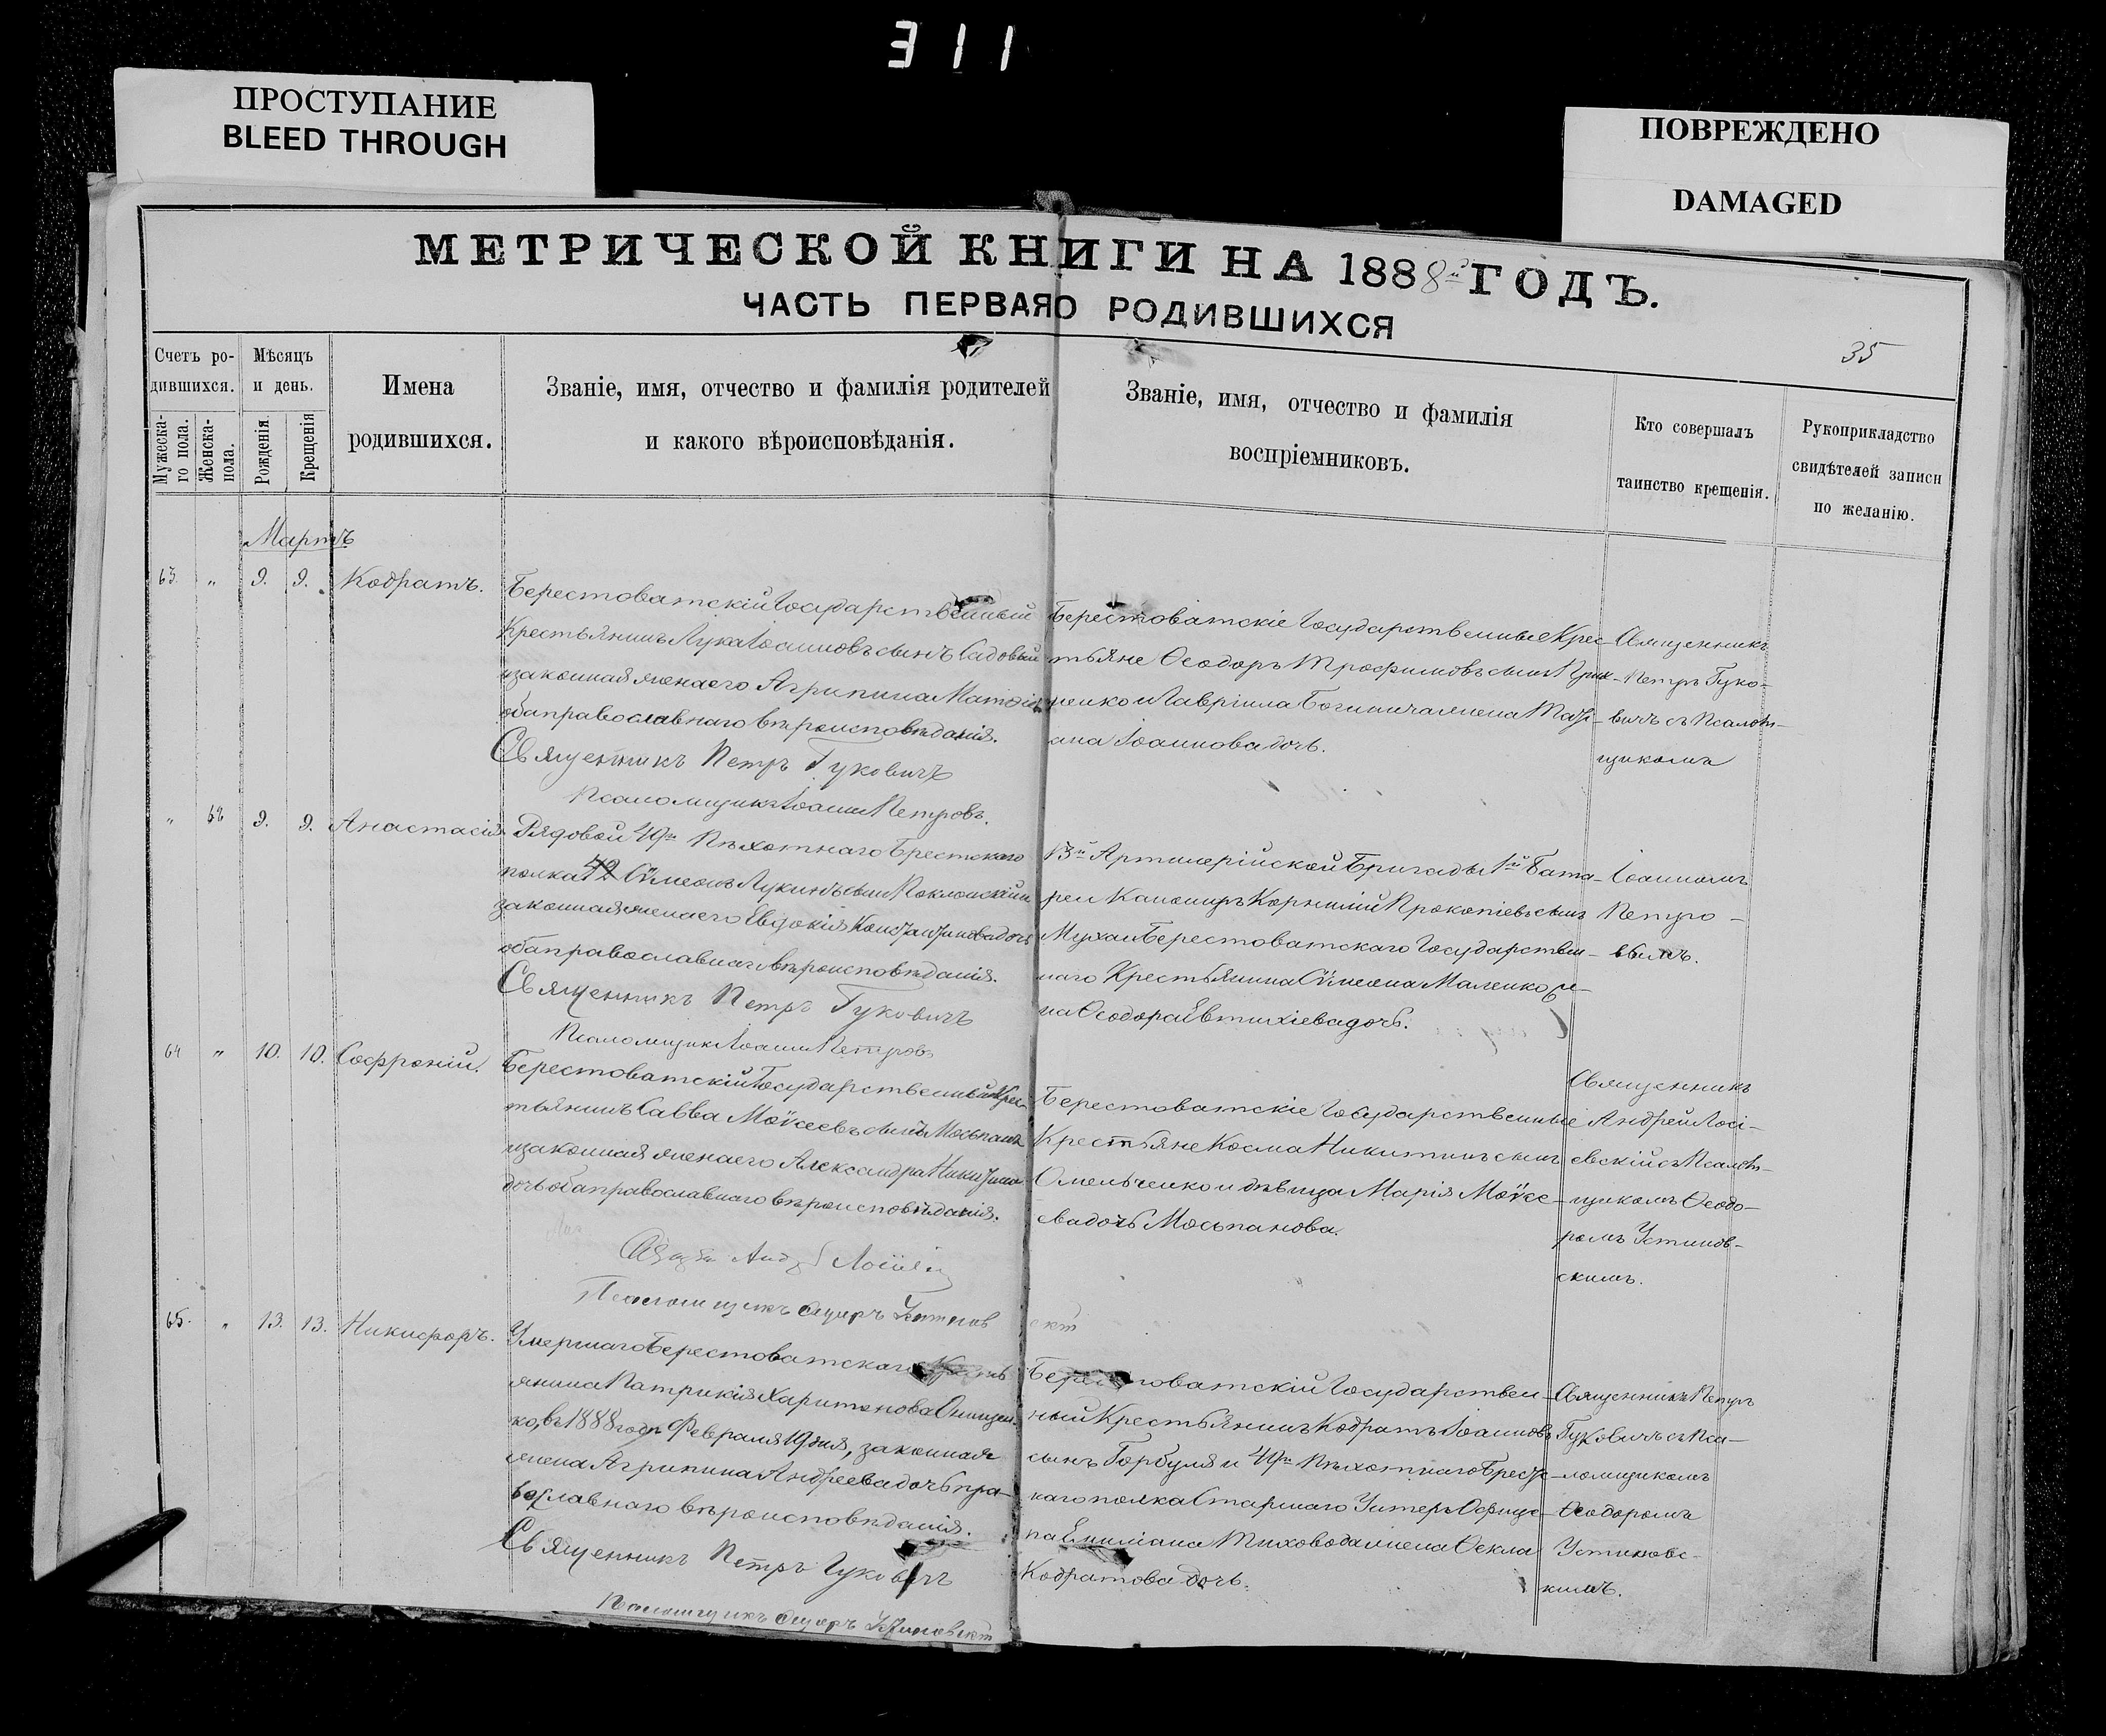 311
ПРОСТУПАНИЕ
BLEED THROUGH
ПОВРЕЖДЕНО
DAMAGED
МЕТРИЧЕСКОЙ КНИГИ НА 1888й ГОДЪ.
ЧАСТЬ ПЕРВАЯ О РОДИВШИХСЯ
35
Счетъ ро-
дившихся.
Мужеска-
го пола.
Женска-
пола.
Мѣсяцъ
и день.
Рожденія
Крещенія
Имена
родившихся.
Званіе, имя, отчество и фамилія родителей
и какого вѣроисповѣданія.
Званіе, имя, отчество и фамилія
воспріемниковъ.
Кто совершалъ
таинство крещенія.
Рукоприкладство
свидѣтелей записи
по желанію.
Мартъ
63. " 9. 9. Кодратъ.
Берестоватскій Государственный
Крестьянинъ Лука Іоанновъ сынъ Садовый
и законная жена его Агрипина
оба православнаго вѣроисповѣданія.
Священникъ Петръ Гуковичъ
Псаломщикъ Іоаннъ Петровъ.
Берестоватскіе Государственные Крес-
тьяне Ѳеодоръ Трофимовъ сынъ
и Гавріила жена Таті-
ана Іоаннова дочь.
Священникъ
Петръ Гуко-
вичъ съ Псалом-
щикомъ
" 9. 9. Анастасія
Рядовой 49го Пѣхотнаго Брестскаго
полка Сѵмеонъ Лукинъ сынъ
законная жена его Евдокія Константинова дочь
оба православнаго вѣроисповѣданія.
Священникъ Петръ Гуковичъ
Псаломщикъ Іоаннъ Петровъ
13й Артилерійской Бригады 1й Бата-
реи Канониръ Корнилій Прокопіевъ сынъ
Муха и Берестоватскаго Государствен-
наго Крестьянина Сѵмеона Маленко же-
на Ѳеодора Евтихіева дочь.
Іоанномъ
Петро-
вымъ.
64 " 10. 10. Софроній.
Берестоватскій Государственный Крес-
тьянинъ Савва Моѵсеевъ сынъ Мосьпанъ
и законная жена его Александра Никитина
дочь оба православнаго вѣроисповѣданія.
Псаломщикъ Ѳеодоръ Устиновскій
Берестоватскіе Государственные
Крестьяне Косма Никитинъ сынъ
Омельченко и дѣвица Марія Моѵсе-
ева дочь Мосьпанова.
Священникъ
Андрей Лосі-
евскій съ Псалом-
щикомъ Ѳеодо-
ромъ Устинов-
скимъ.
65. " 13. 13. Никифоръ.
Умершаго Берестоватскаго Кресть
янина Патрикія Харитонова Онищен-
ко, въ 1888 году Февраля 19 дня, законная
жена Агрипина Андреева дочь пра-
вославнаго вѣроисповѣданія.
Священникъ Петръ Гуковичъ
Псаломщикъ Ѳеодоръ Устиновскій
Берестоватскій Государствен-
ный Крестьянинъ Кодратъ Іоанновъ
сынъ Горбуля и 49го Пѣхотнаго Брест-
каго полка Старшаго Унтеръ Офице-
ра Емиліана Тиховода жена Ѳекла
Кодратова дочь.
Священникъ Петръ
Гуковичъ съ Пса-
ломщикомъ
Ѳеодоромъ
Устиновс-
кимъ.